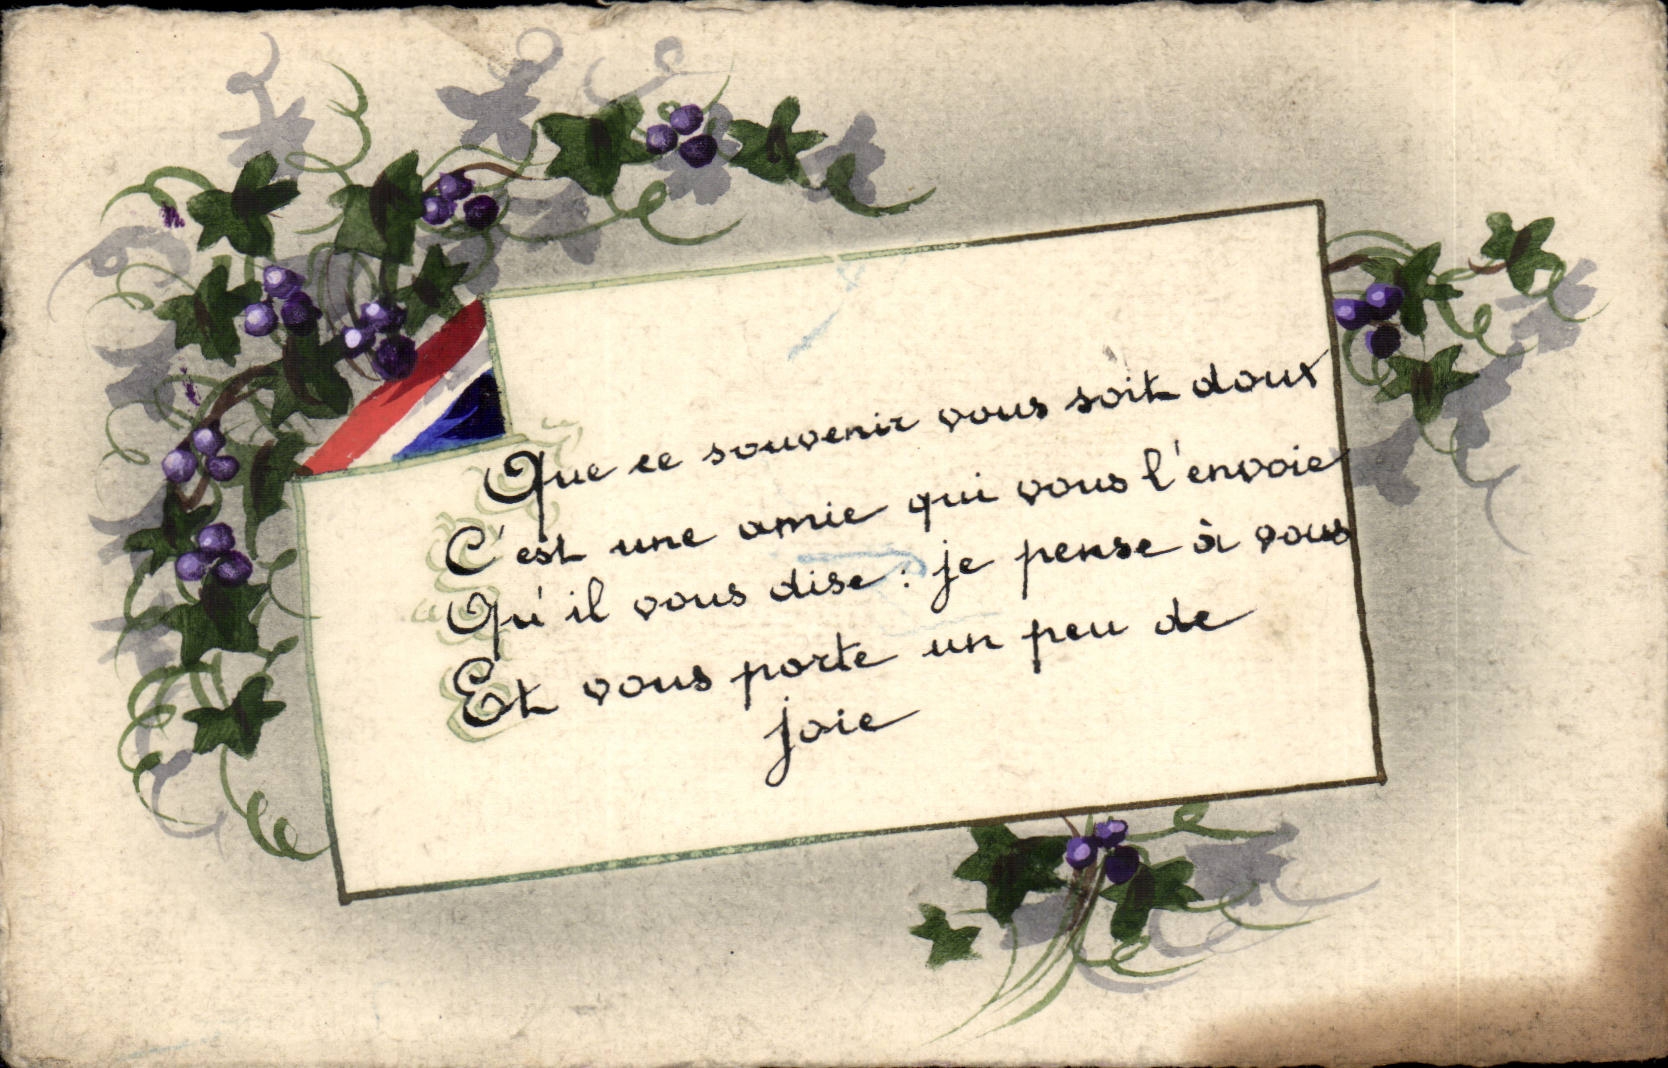 Que ce souvenir vous soit doux
C'est une amie qui vous l'envoie
Qu'il vous dise : je pense à vous
Et vous porte un peu de
joie